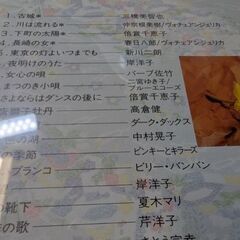 1. 古城* 三橋美智也
2. 川は流れる* 仲宗根美樹/ヴィチェアンジェリカ
3. 下町の太陽* 倍賞千恵子
4. 長崎の女* 春日八郎/ヴィチェアンジェリカ
5. 東京の灯よいつまでも 新川二朗
夜明けのうた 岸洋子
女心の唄 バーブ佐竹
まつのき小唄 二宮ゆき子/ブルーエコーズ
さよならはダンスの後に 倍賞千恵子
牡丹 高倉健
ダーク・ダックス
色の湖 中村晃子
の季節 ピンキーとキラーズ
ブランコ ビリー・バンバン
岸洋子
の靴下 夏木マリ
の歌 芹洋子